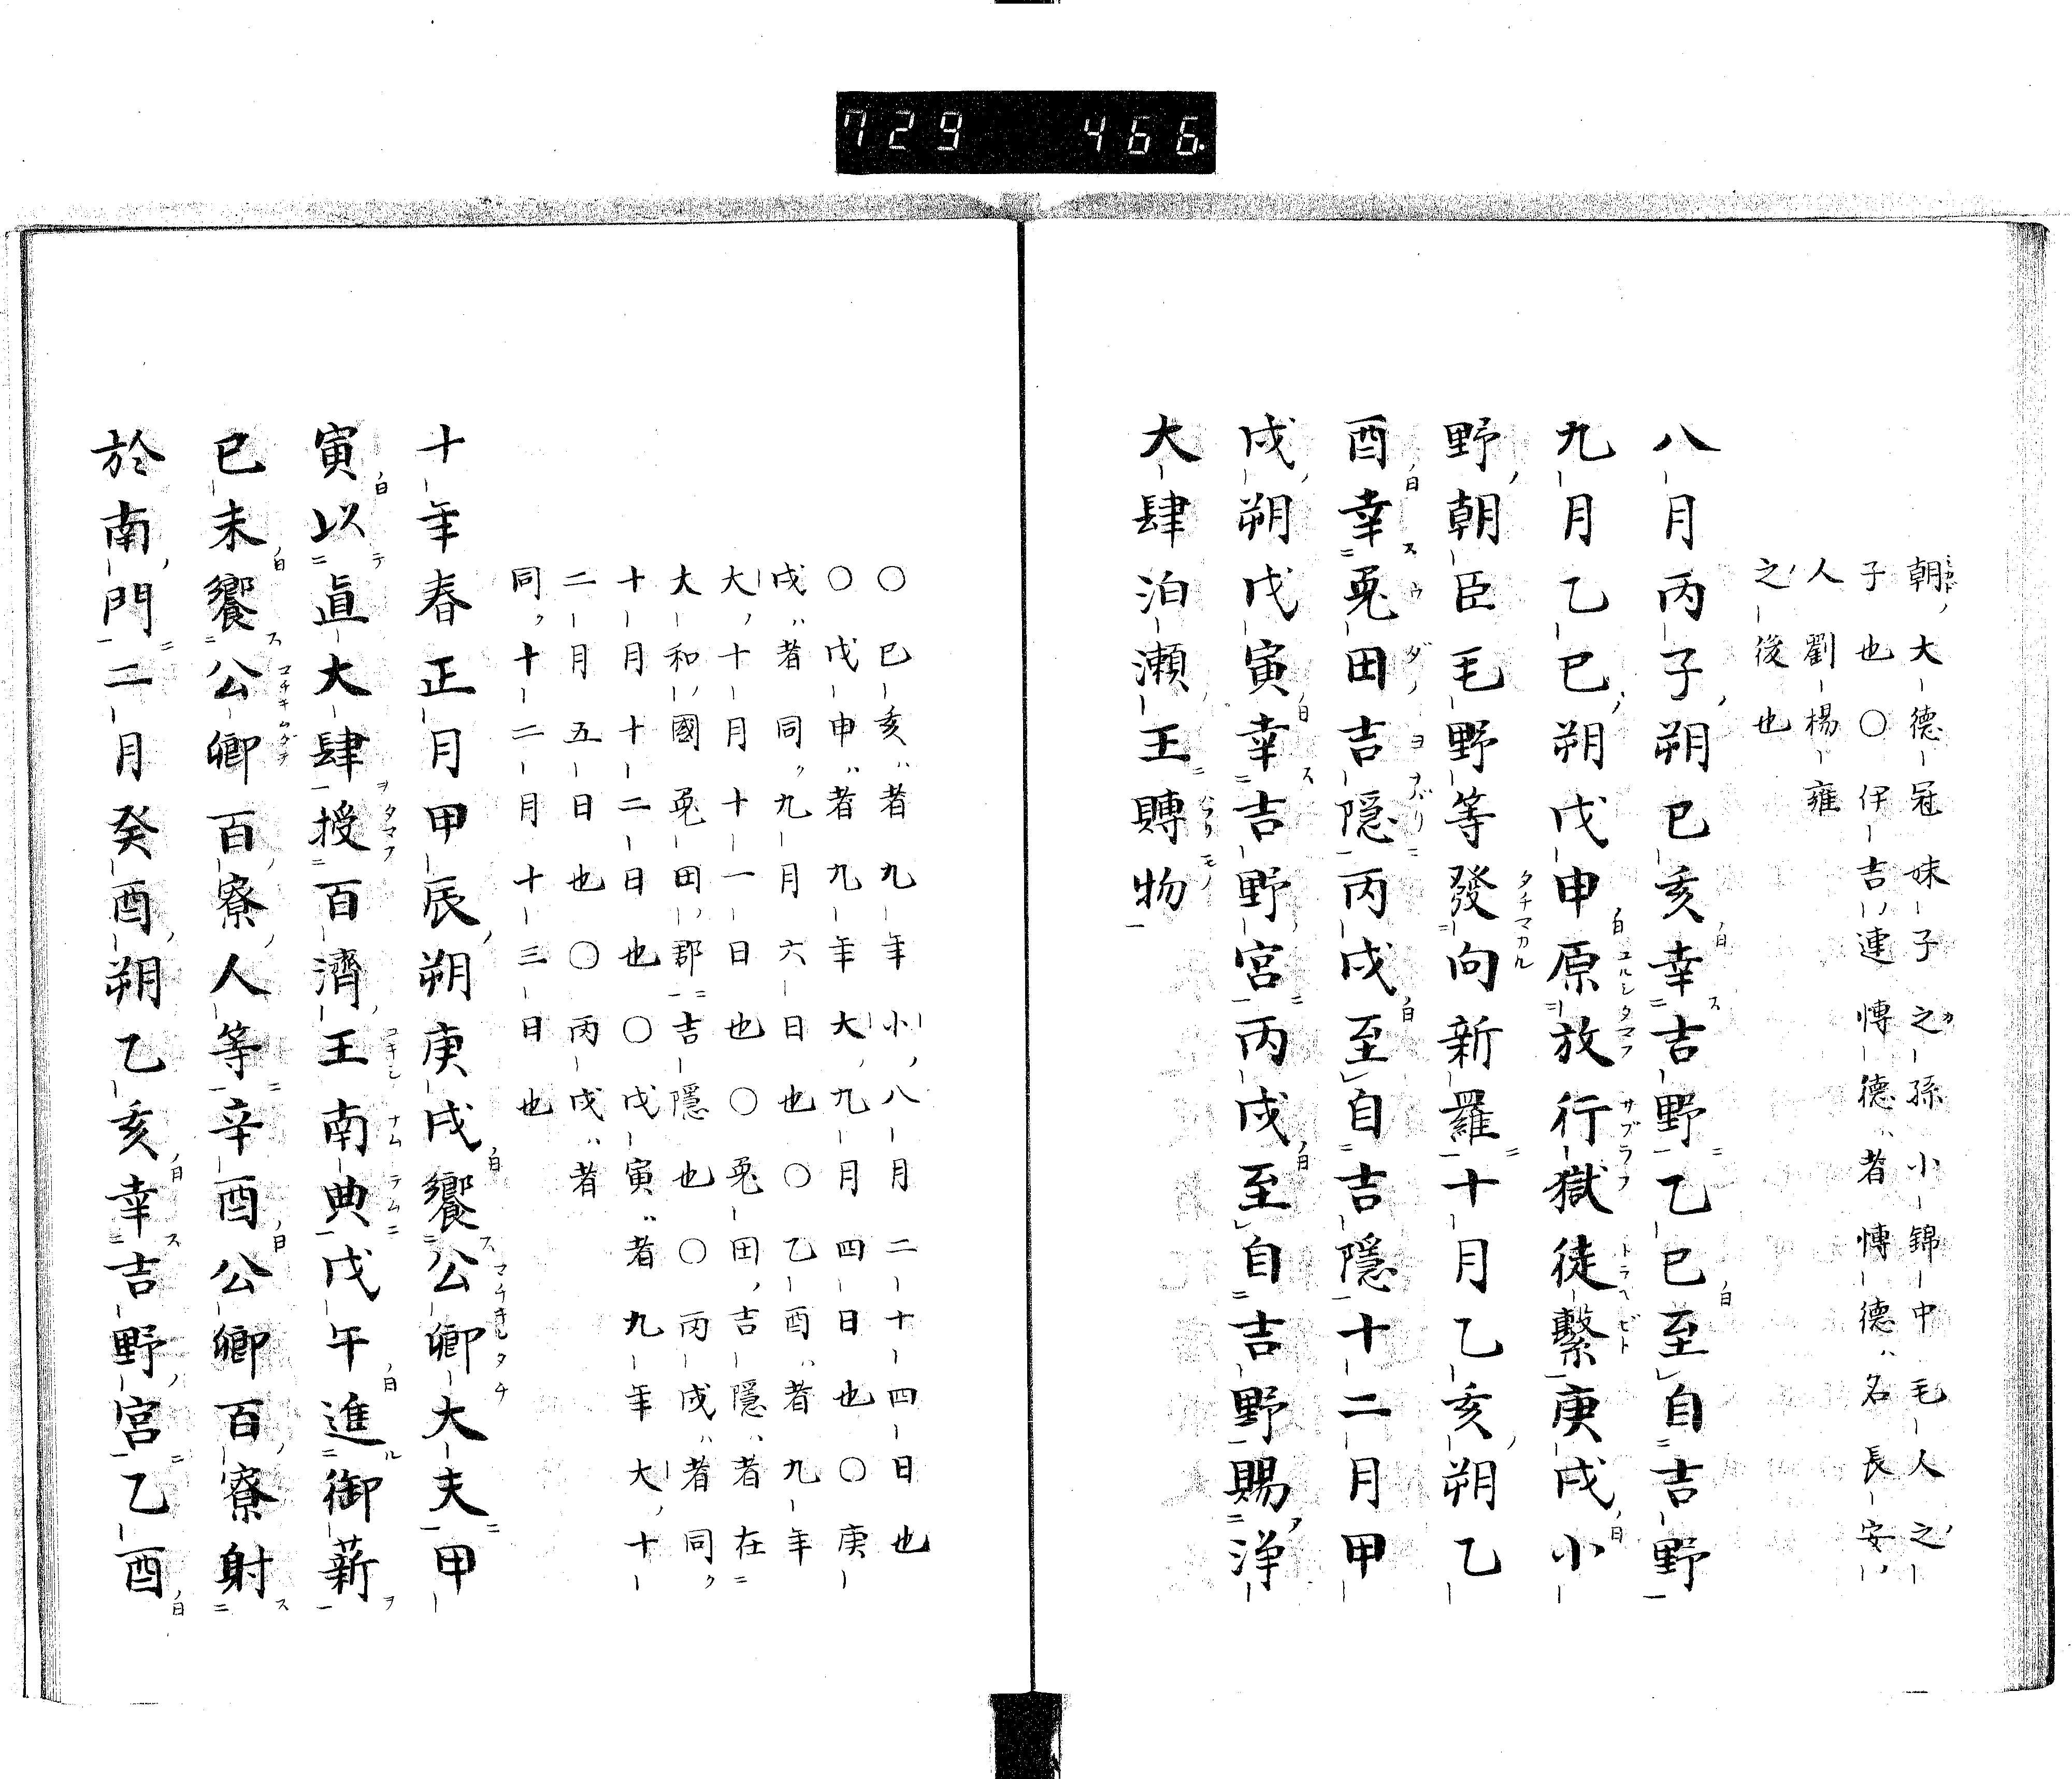 729 466
朝大德冠妹子之孫小錦中毛人之
子也〇伊吉連愽德者愽德名長安
人劉楊雍
之後也
八月丙子朔己亥幸吉野乙巳至自吉野
九月乙巳朔戊申原放行獄徒繫庚戌小
野朝臣毛野等發向新羅十月乙亥朔乙
酉幸菟田吉隱丙戌至自吉隱十二月甲
戌朔戊寅幸吉野宮丙戌至自吉野賜淨
大肆泊瀬王賻物
〇己亥者九年小八月二十四日也
〇戊申者九年大九月四日也〇庚
戌者同九月六日也〇乙酉者九年
大十月十一日也〇菟田吉隱者在
大和國菟田郡吉隱也〇丙戌者同
十月十二日也〇戊寅者九年大十
二月五日也〇丙戌者
同十二月十三日也
十年春正月甲辰朔庚戌饗公卿大夫甲
寅以直大肆授百濟王南典戊午進御薪
己未饗公卿百寮人等辛酉公卿百寮射
於南門二月癸酉朔乙亥幸吉野宮乙酉